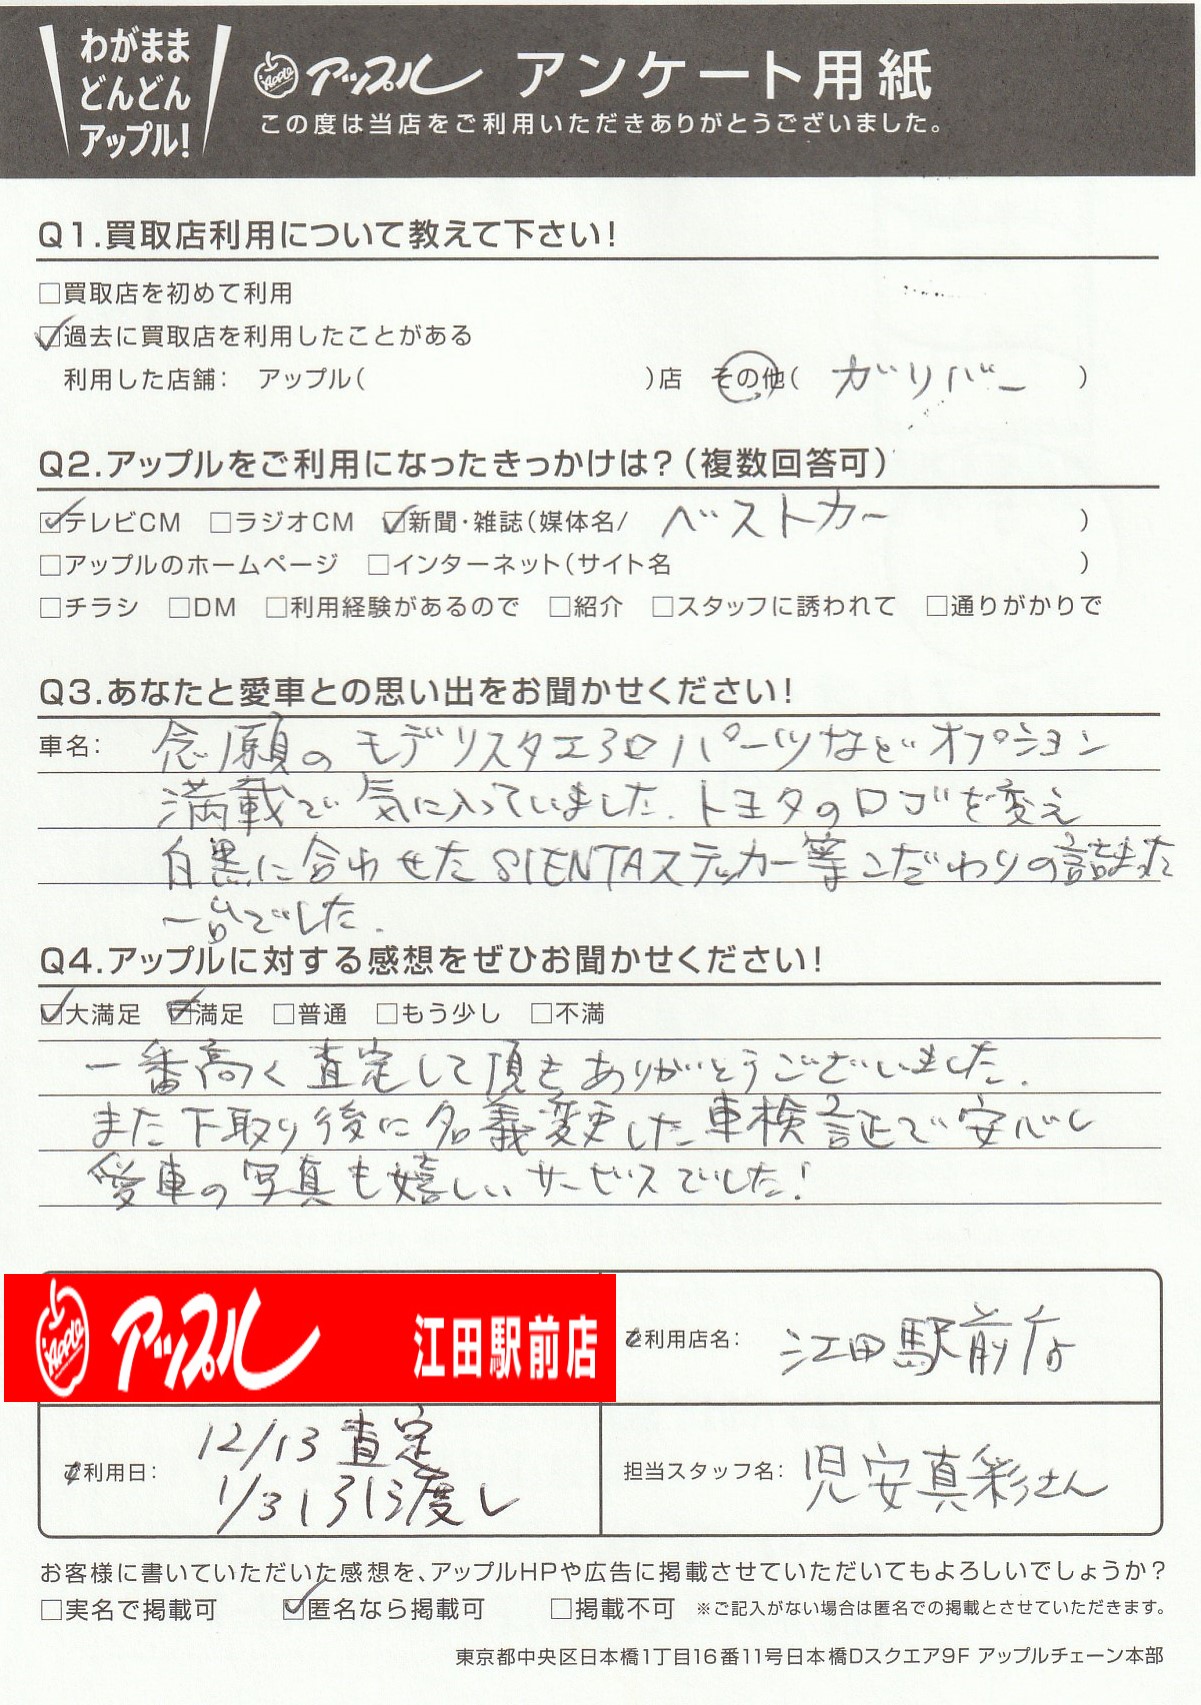 わがまま
どんどん
アップル!
Apple アップル アンケート用紙
この度は当店をご利用いただきありがとうございました。
Q1.買取店利用について教えて下さい!
□買取店を初めて利用
☑過去に買取店を利用したことがある
利用した店舗: アップル( )店 その他( ガリバー )
Q2.アップルをご利用になったきっかけは?(複数回答可)
☑テレビCM □ラジオCM ☑新聞・雑誌(媒体名/ ベストカー )
□アップルのホームページ □インターネット(サイト名 )
□チラシ □DM □利用経験があるので □紹介 □スタッフに誘われて □通りがかりで
Q3.あなたと愛車との思い出をお聞かせください!
車名: 念願のモデリスタエアロパーツなどオプション
満載で気に入っていました.トヨタのロゴを変え
白黒に合わせたSIENTAステッカー等こだわりの詰まった
一台でした.
Q4.アップルに対する感想をぜひお聞かせください!
☑大満足 ☑満足 □普通 □もう少し □不満
一番高く査定して頂きありがとうございました.
また下取り後に名義変更した車検証で安心し
愛車の写真も嬉しいサービスでした!
Apple アップル 江田駅前店
ご利用店名: 江田駅前店
ご利用日: 12/13 査定
1/31 引渡し
担当スタッフ名: 児安真彩さん
お客様に書いていただいた感想を、アップルHPや広告に掲載させていただいてもよろしいでしょうか?
□実名で掲載可 ☑匿名なら掲載可 □掲載不可 ※ご記入がない場合は匿名での掲載とさせていただきます。
東京都中央区日本橋1丁目16番11号日本橋Dスクエア9F アップルチェーン本部